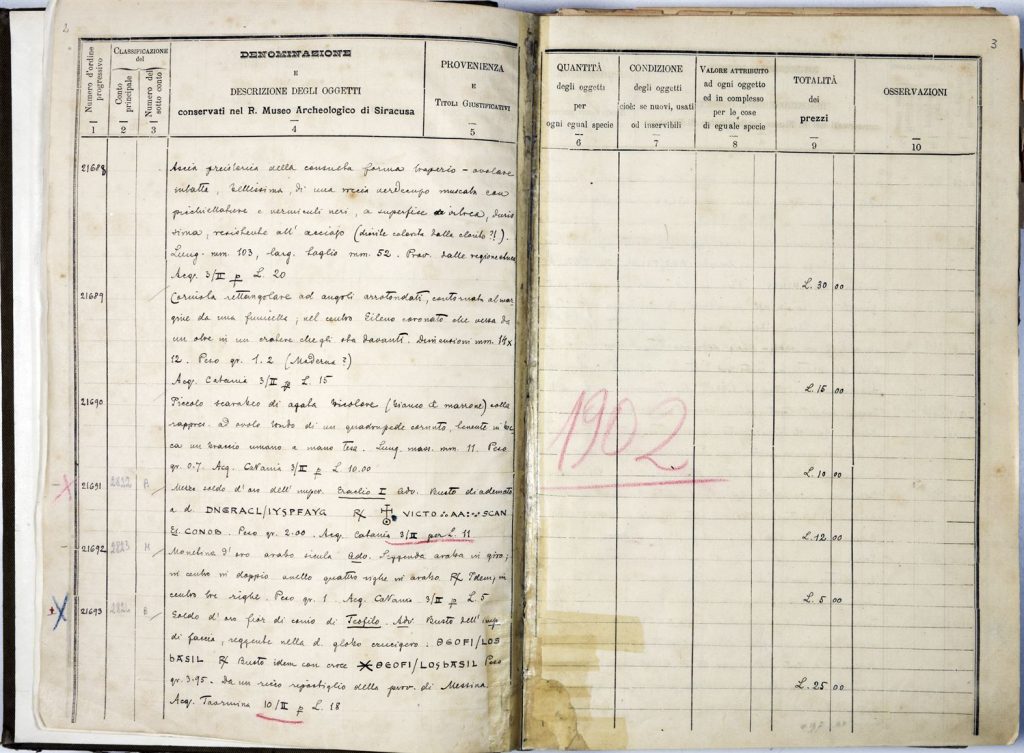 2
Numero d'ordine progressivo
CLASSIFICAZIONE del
Conto principale
Numero del sotto conto
DENOMINAZIONE
E
DESCRIZIONE DEGLI OGGETTI
conservati nel R. Museo Archeologico di Siracusa
PROVENIENZA
E
TITOLI GIUSTIFICATIVI
1 2 3 4 5
21688 Ascia preistorica della consueta forma trapezio-ovolare
intatta, bellissima, di una roccia verdecupo muscata con
picchiettature e vermicuti neri, a superficie vitrea, duris
sima, resistente all'acciaio (diorite colorita dalla clorite ?!).
Lung. mm. 103, larg. taglio mm. 52. Prov. dalle regione
Acq. 3/II p L. 20
21689 Corniola rettangolare ad angoli arrotondati, contornata al mar
gine da una funicella; nel centro Sileno coronato che versa da
un otre in un cratere che gli sta davanti. Dimensioni mm. 14x
12. Peso gr. 1.2 (Moderna?)
Acq. Catania 3/II p L. 15
21690 Piccolo scarabeo di agata bicolore (bianco e marrone) colla
rappres. ad ovolo tondo di un quadrupede cornuto, tenente in boc
ca un braccio umano a mano tesa. Lung. mass. mm. 11. Peso
gr. 0.7. Acq. Catania 3/II p L. 10.00
21691 2822 B Mezzo soldo d'oro dell'imper. Eraclio I Adv. Busto diademato
a d. DNERACL/IYSPFAYG R/ VICTO∴AA∴SCAN
Es. CONOB. Peso gr. 2.00. Acq. Catania 3/II per L. 11
21692 2823 M Monetina d'oro arabo sicula Ado. Leggenda araba in giro;
in centro in doppio anello quattro righe in arabo. R/ Idem; in
centro tre righe. Peso gr. 1. Acq. Catania 3/II p L. 5
21693 2824 B Soldo d'oro fior di conio di Teofilo. Adv. Busto dell'imp.
di faccia, reggente nella d. globo crucigero: ΘEOFI/LOS
bASIL R/ Busto idem con croce ΘEOFI/LOSbASIL Peso
gr. 3.95. Da un ricco ripostiglio della prov. di Messina.
Acq. Taormina 10/II p L. 18
3
QUANTITÀ
degli oggetti
per
ogni egual specie
CONDIZIONE
degli oggetti
cioè: se nuovi, usati
od inservibili
VALORE ATTRIBUITO
ad ogni oggetto
ed in complesso
per le cose
di eguale specie
TOTALITÀ
dei
prezzi
OSSERVAZIONI
6 7 8 9 10
L. 30 00
L. 15 00
1902
L. 10 00
L. 12 00
L. 5 00
L. 25 00